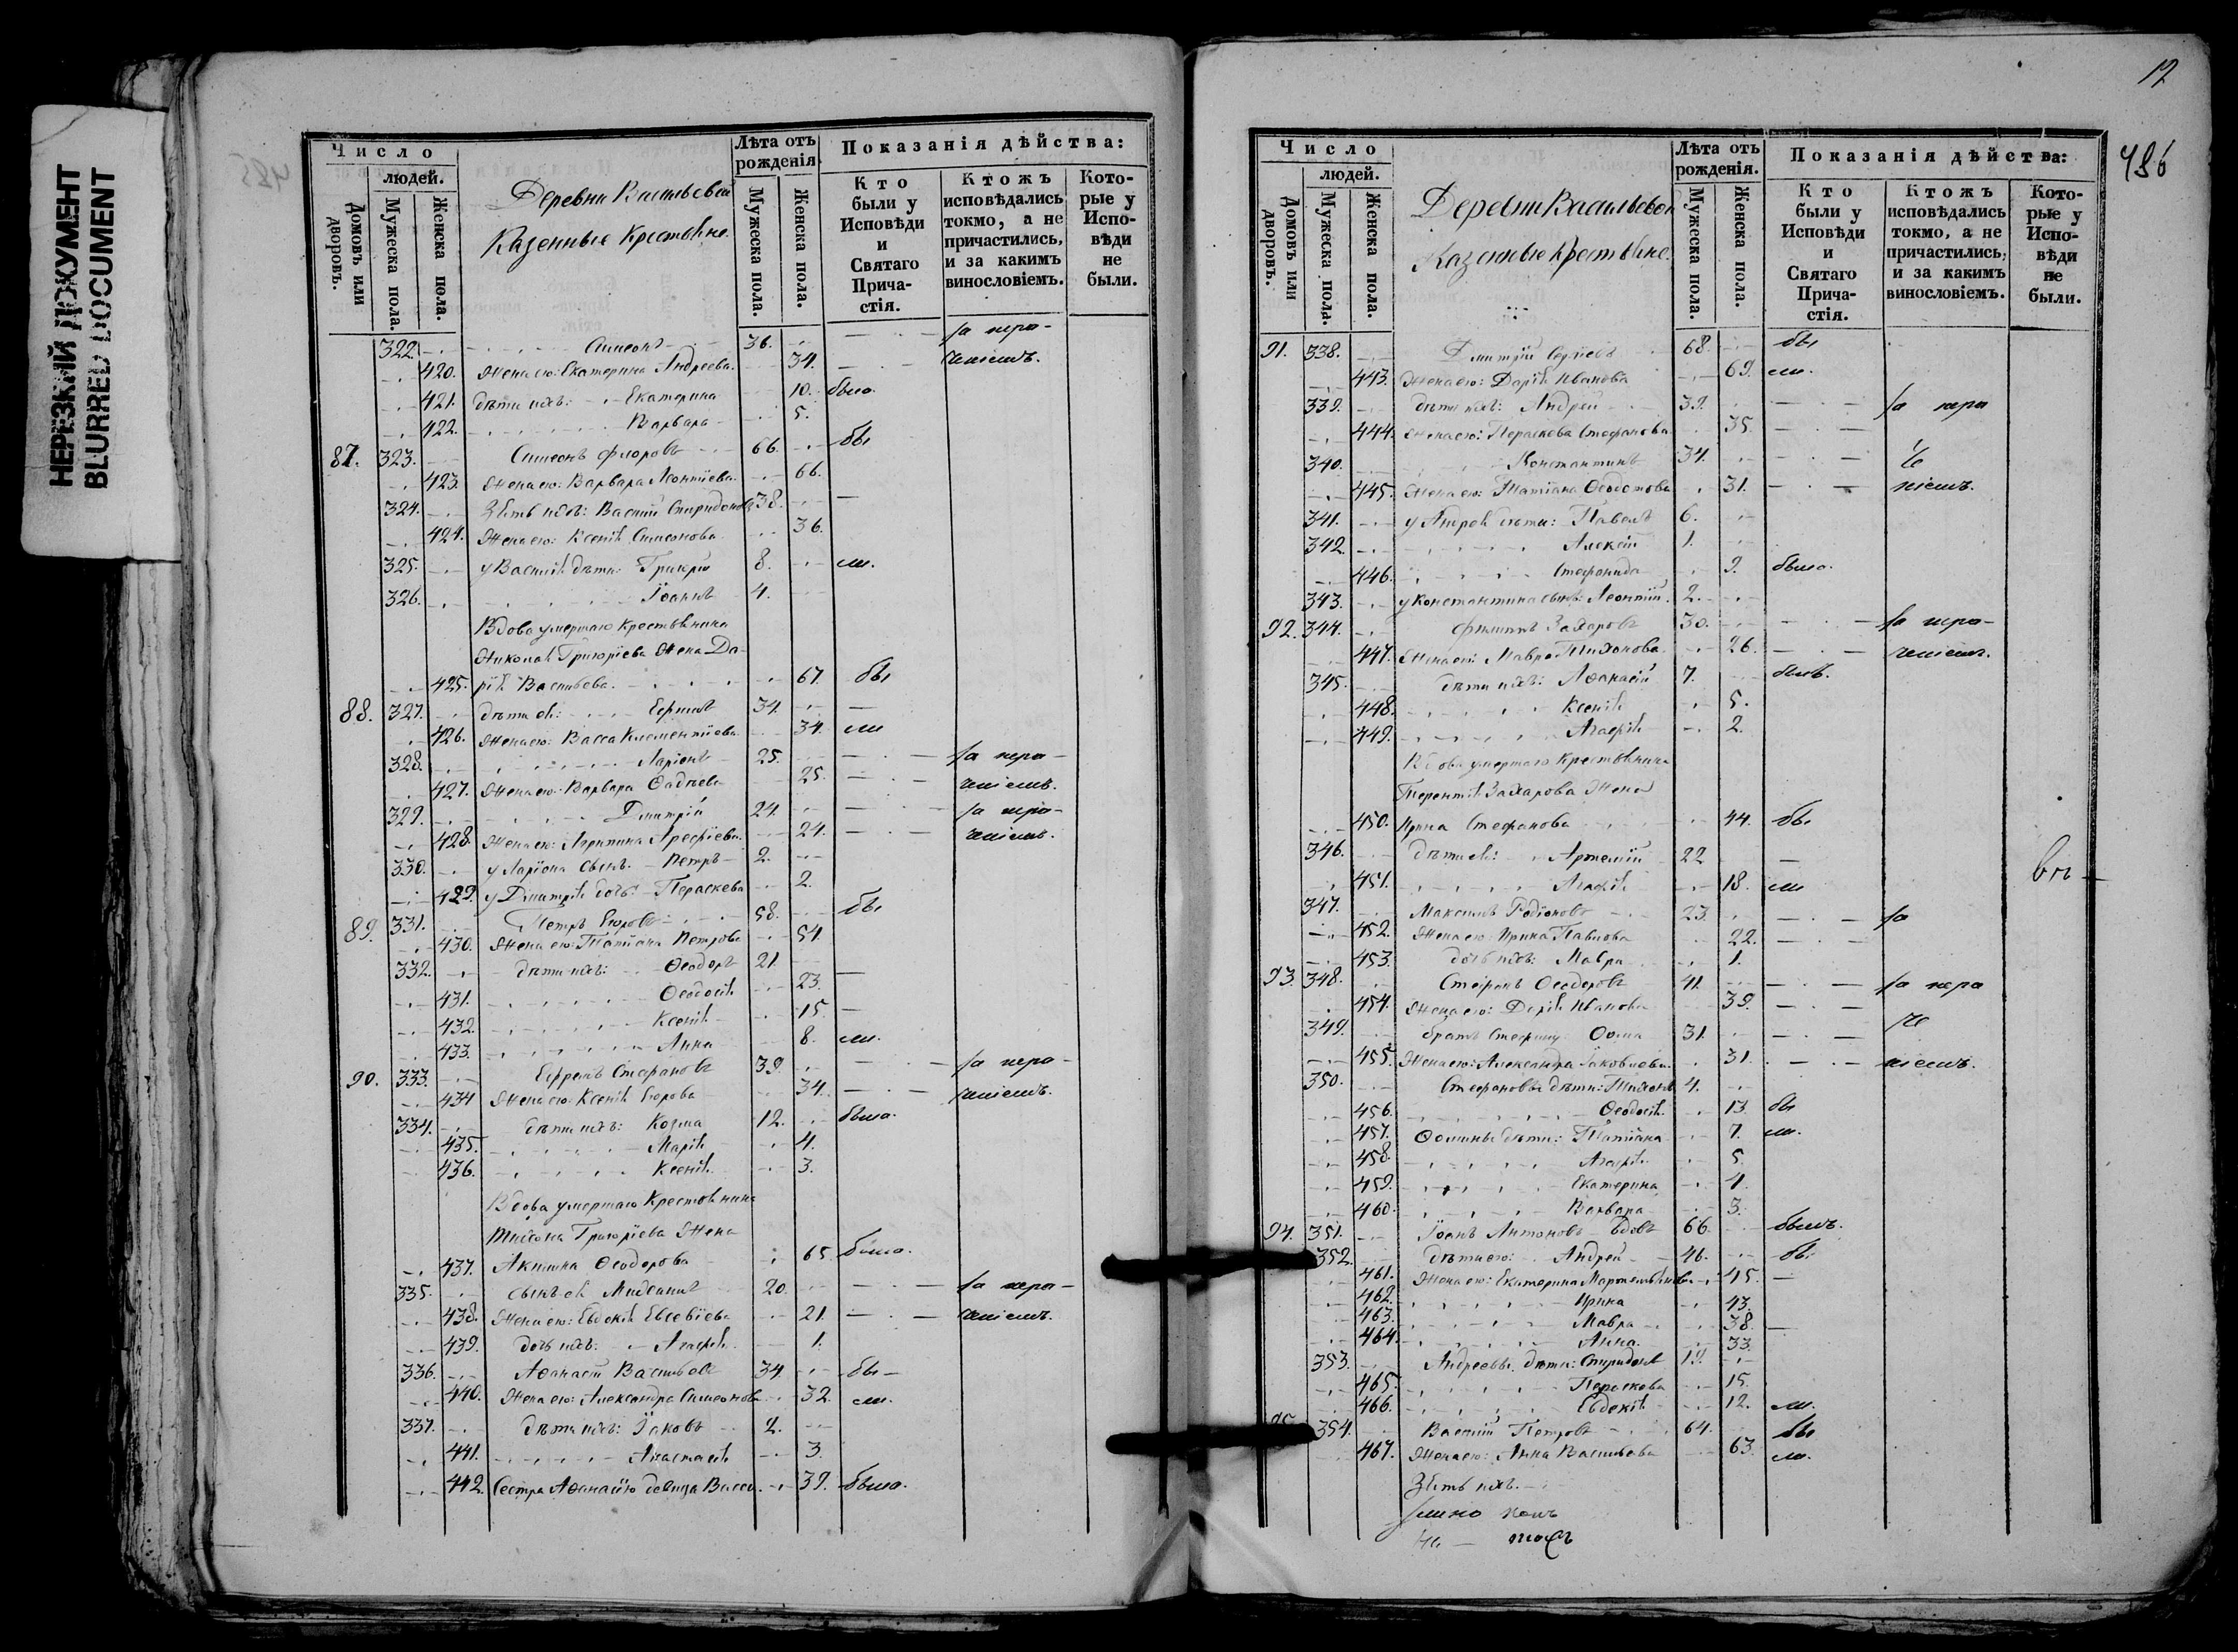 НЕРЕЗКИЙ ДОКУМЕНТ
BLURRED DOCUMENT
Число
людей.
Домовъ или дворовъ.
Мужеска пола.
Женска пола.
Деревни Васильевой
Казенные Крестьяне.
Лѣта отъ рожденія.
Мужеска пола.
Женска пола.
Показанія дѣйства:
Кто были у Исповѣди и Святаго Причастія.
Ктожъ исповѣдались токмо, а не причастились, и за какимъ винословіемъ.
Которые у Исповѣди не были.
322. Симеонъ 36. за нера-
420. Жена его: Екатерина Андреева 34. чен­іемъ.
421. дѣти ихъ: Екатерина 10. была.
422. Варвара 5.
87. 323. Симеонъ Флоровъ 66. бы
423. Жена его: Варвара Леонтіева 66.
324. Зять ихъ: Василій Спиридоновъ 38. —
424. Жена его: Ксенія Симеонова 36.
325. у Василія дѣти: Григорій 8. ли.
326. Іоаннъ 4.
Вдова умершаго Крестьянина
Николая Григоріева Жена Да-
425. рія Васильева. 67. бы
88. 327. дѣти ея: Ефимъ 34. —
426. Жена его: Васса Климентіева 34. ли
328. Ларіонъ 25. за нера-
427. Жена его: Варвара Фадѣева 25. ченіемъ.
329. Димитрій 24. за нера-
428. Жена его: Агрипина Арефіева 24. ченіемъ.
330. у Ларіона сынъ: Петръ 2.
429. у Димитрія дочь: Параскева 2.
89. 331. Петръ Егоровъ 58. бы
430. Жена его: Татіана Петрова 54.
332. дѣти ихъ: Ѳеодоръ 21.
431. Ѳеодосія 23. —
432. Ксенія 15. —
433. Анна 8. ли.
90. 333. Ефремъ Стефановъ 39. за нера-
434 Жена его Ксенія Егорова 34. ченіемъ.
334. дѣти ихъ: Козма 12. была.
435. Марія 4.
436. Ксенія 3.
Вдова умершаго Крестьянина
Тихона Григоріева Жена
437. Акилина Ѳеодорова 65. была.
335. сынъ ея 20. за нера-
438. Жена его: Евдокія Евсевіева 21. ченіемъ.
439. дочь ихъ: Агафія 1.
336. Аѳанасій Васильевъ 34. бы-
440. Жена его: Александра Симеонова 32. ли.
337. дѣти ихъ: Іаковъ 2.
441. Анастасія 3.
442. Сестра Аѳанасію дѣвица Васса 39. была.
12
486
Число
людей.
Домовъ или дворовъ.
Мужеска пола.
Женска пола.
Деревни Васильевой
Казенные Крестьяне.
Лѣта отъ рожденія.
Мужеска пола.
Женска пола.
Показанія дѣйства:
Кто были у Исповѣди и Святаго Причастія.
Ктожъ исповѣдались токмо, а не причастились, и за какимъ винословіемъ.
Которые у Исповѣди не были.
91. 338. Димитрій Сергіевъ 68. бы
443. Жена его: Дарія Иванова 69. ли.
339. дѣти ихъ: Андрей 39. за нера
444. Жена его: Параскева Стефанова 35.
340. Константинъ 34. че
445. Жена его: Татіана Ѳедотова 31. ніемъ.
341. у Андрея дѣти: Павелъ 6.
342. Алексій 1.
446. Стефанида 9. была.
343. у Константина сынъ: Леонтій. 2.
92. 344. Филиппъ Захаровъ 30. за нера-
447. Жена его: Мавра Тихонова 26. ченіемъ.
345. дѣти ихъ: Аѳанасій 7. былъ.
448. Ксенія 5.
449. Агафія 2.
Вдова умершаго Крестьянина
Терентія Захарова Жена
450. Ирина Стефанова 44. бы
346. дѣти ея: Артемій 22 —
451. Агафія 18. ли
347. Максимъ Родіоновъ 23. за
452. Жена его Ирина Павлова 22.
453. дочь ихъ: Мавра 1.
93. 348. Стефанъ Ѳеодоровъ 41. за нера
454. Жена его: Дарія Иванова 39.
349. братъ Стефану Ѳома 31. че
455. Жена его: Александра Іаковлева 31. ніемъ.
350. Стефановы дѣти: Тихонъ 4.
456. Ѳеодосія 13 бы
457. Ѳомины дѣти: Татіана 7. ли.
458. Агафія 5.
459. Екатерина 4.
460. Варвара 3.
94. 351. Іоаннъ Антоновъ вдовъ 66. былъ.
352. дѣти его: Андрей 46. бы
461. Жена его: Екатерина 45. —
462. Ирина 43.
463. Мавра 38. —
464. Анна 33.
353. Андреевы дѣти: Спиридонъ 19.
465. Параскева 15.
466. Евдокія 12. ли.
95. 354. Василій Петровъ 64. бы
467. Жена его: Анна Васильева 63. ли.
Зять ихъ.